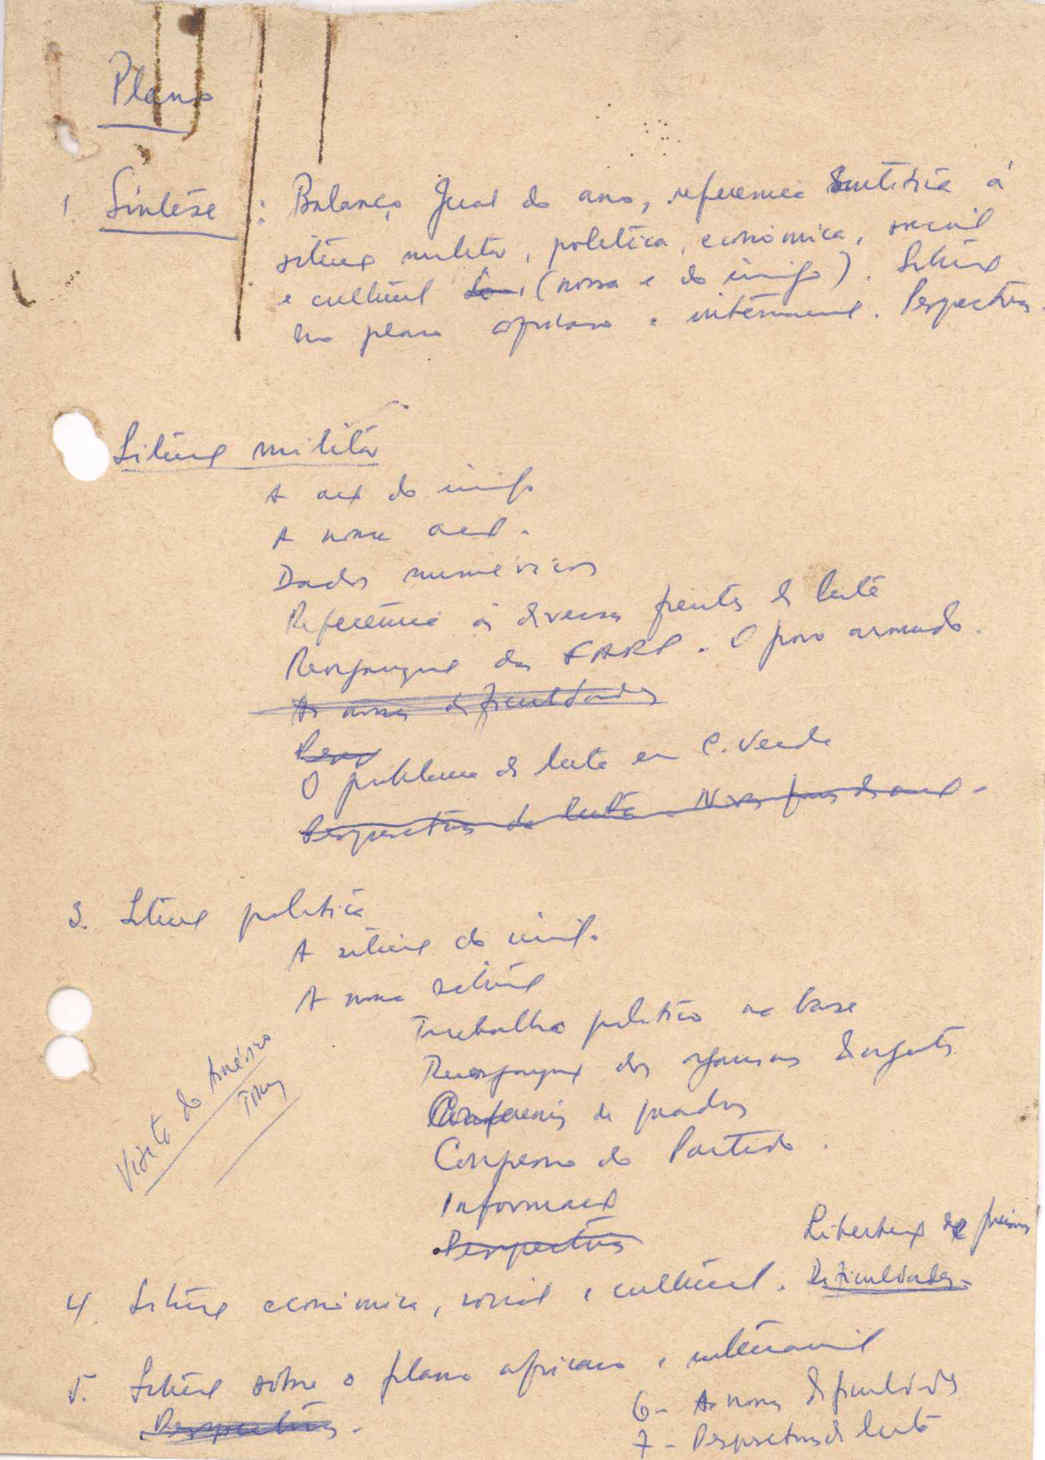 Plano
1 Síntese : Balanço geral do ano, referência sintética à
situação militar, política, económica, social
e cultural (nossa e do inimigo). Situação
no plano africano e internacional. Perspectivas.
Situação militar
A acção do inimigo
A nossa acção.
Dados numéricos
Referência às diversas frentes de luta
Reorganização das FARP. O povo armado.
As nossas dificuldades
O problema da luta em C. Verde
Perspectivas da luta. Novas fases de acção.
3. Situação política
A situação do inimigo.
A nossa situação
Trabalho político na base
Reorganização dos organismos dirigentes
Conferências de quadros
Congresso do Partido.
Informação
Perspectivas
Visita do Américo
Libertação de presos
4. Situação económica, social e cultural. Dificuldades.
5. Situação sobre o plano africano e internacional
Perspectivas.
6- As nossas dificuldades
7- Perspectivas da luta